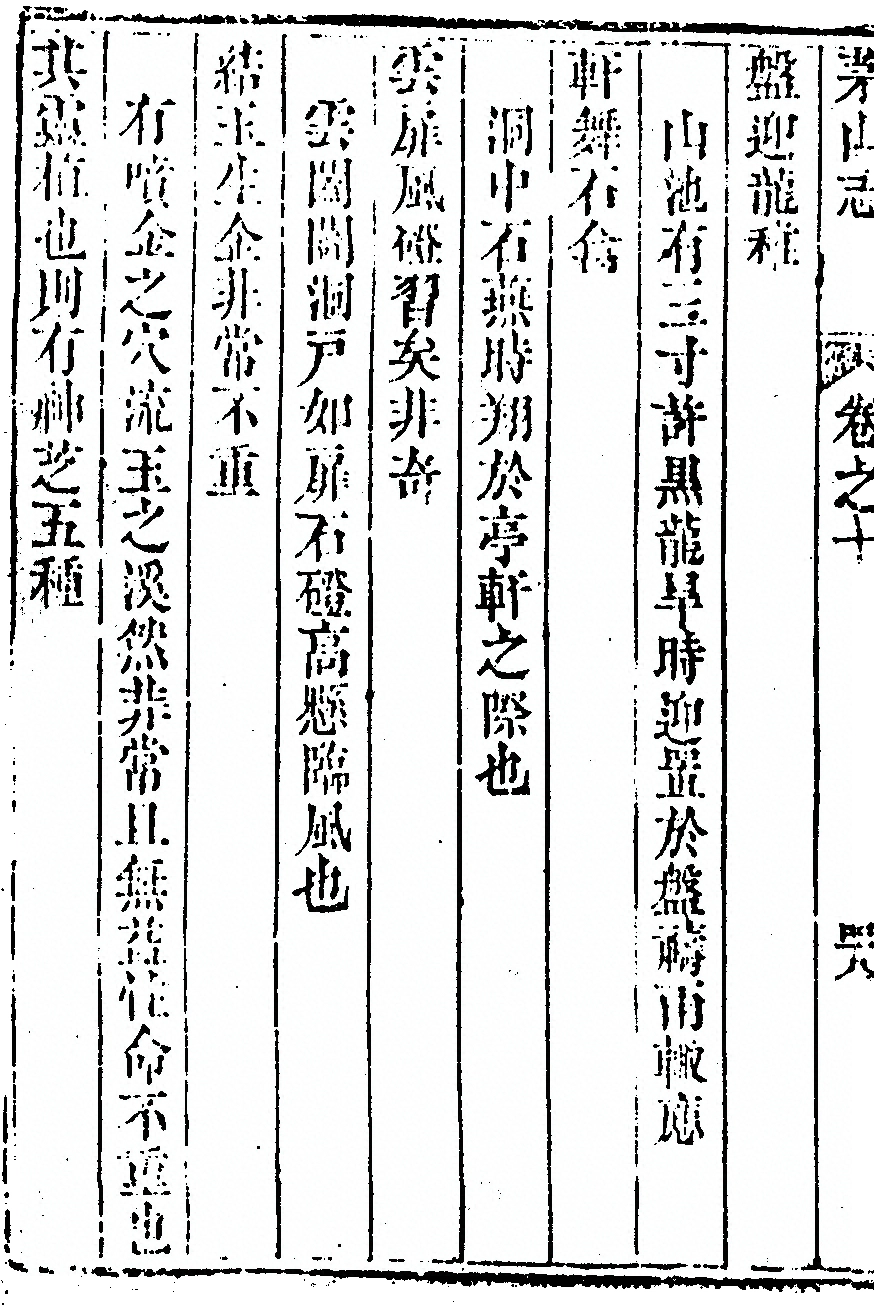 茅山志 卷之十 罘
盤迎龍種
山池有三寸許黑龍旱時迎置於盤禱雨輙應
軒舞石禽
洞中石燕時翔於亭軒之際也
雲扉風磴習矣非奇
雲闔開洞戸如扉石磴高懸臨風也
結玉生金非常不重
有噴金之穴流玉之溪然非常且無益性命不重也
其靈植也則有神芝五種